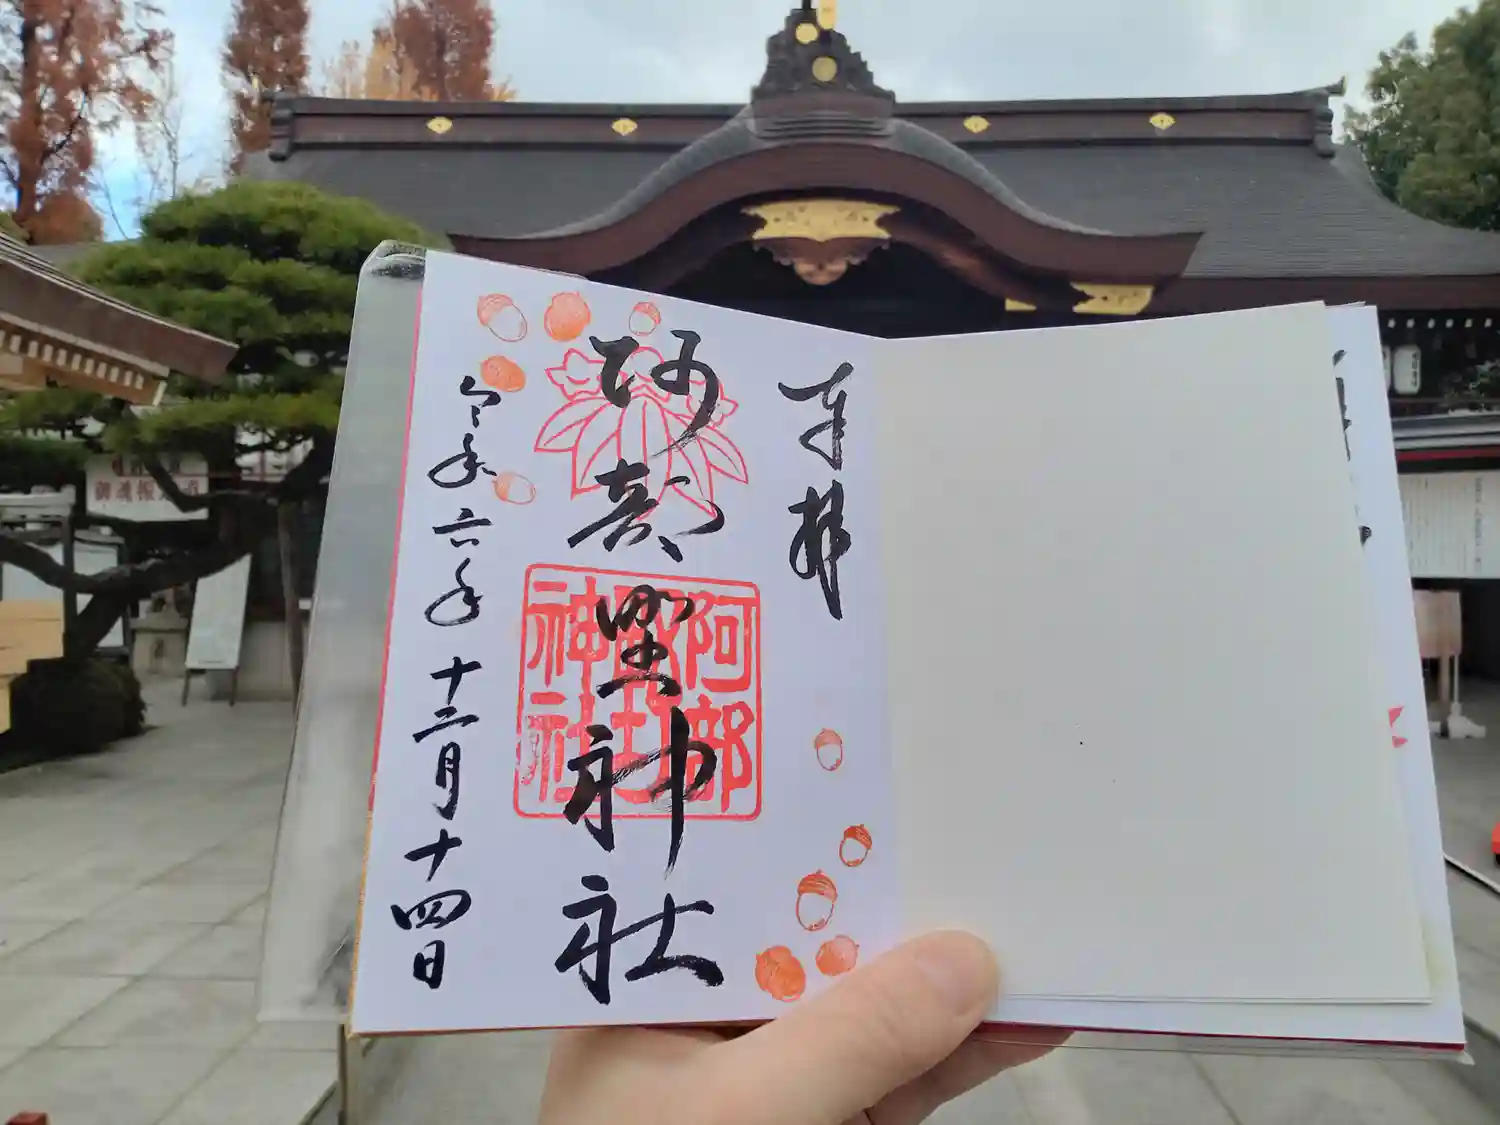 奉拝
阿部野神社
阿部
野
神社
令和六年
十二月十四日